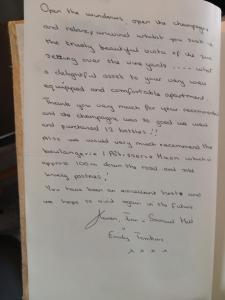 Open the windows, open the champagne,
and relax, unwind whilst you soak in
the truely beautiful views of the sun
setting over the vine yards .... what
a delightful asset to your very well
equipped and comfortable apartment.
Thank you very much for your recommend
and the champagne was so good we went
and purchased 12 bottles!!
Also we would very much recommend the
boulangerie which is
approx 100m down the road and sells
lovely pastries!
You have been an excellent host and
we hope to visit again in the future
Samuel
Emily
x x x x